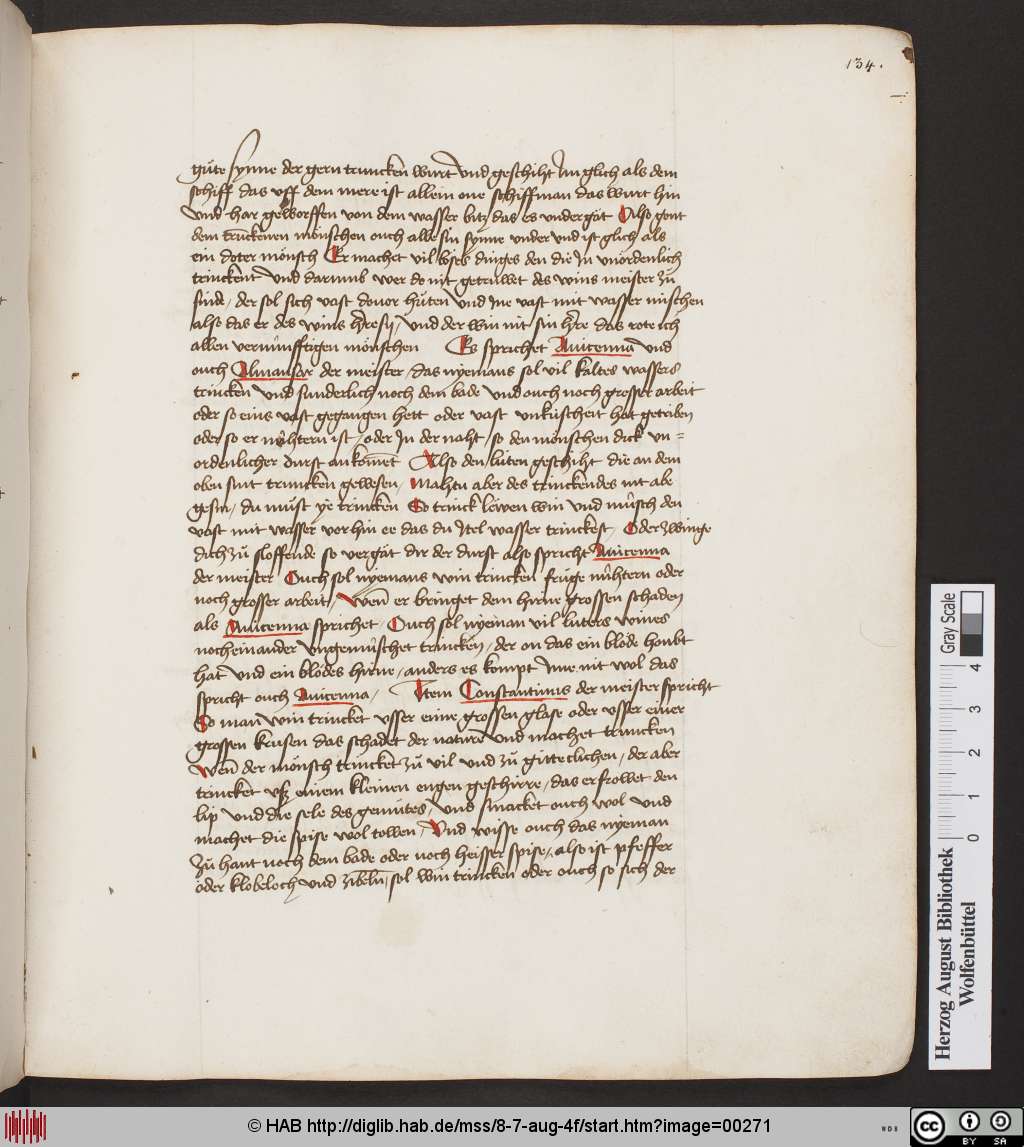 134.
gůte synne der gern truncken wurt Vnd geschiht Jm glich als dem
schiff das vff dem mere ist allein one schiffman das wurt hin
vnd har geworffen von dem wasser bitz das es vndergät Also gent
dem trūckenen mönschen ouch alle sin synne vnder vnd ist glich als
ein doter mönsch Er machet vil böses dinges den die Jn vnordenlich
trinckent Vnd darumb wer do nit getruwet des wins meister zů
sinde / der sol sich vast dovor hůten Vnd Jne vast mit wasser mischen
also das er des wins h're sij / vnd der win nit sin h're das rote ich
allen vernünfftigen mönschen Es sprichet Auicenna vnd
ouch Almansor der meister / das nyemans sol vil kaltes wassers
trincken Vnd sunderlich noch dem bade Vnd ouch noch grosser arbeit
oder so eins vast gegangen hett oder vast unküscheit hat getriben
oder so er nühtern ist / oder Jn der naht / so den mönschen dick vn=
ordenlicher durst ankomēt Also den lüten geschiht die an dem
oben sint truncken gewesen / Mahtu aber des trinckendes nit abe
gesin / du můst ye trincken So trinck lewen win Vnd müsch den
vast mit wasser vor hin ee das du Jtel wasser trinckest / Oder zwinge
dich zů sloffende so vergät dir der durst also spricht Auicenna
der meister Ouch sol nyemans win trincken früge nühtern oder
noch grosser arbeit / Wen̄ er bringet dem hirne grossen schaden
als Auicenna sprichet / Ouch sol nyeman vil luters wines
nocheinander Vngemüschet trincken / der an das ein blöde houbt
hat Vnd ein blödes hirne / anders es kompt Jme nit wol das
spricht ouch Auicenna / Jtem Constantinus der meister spricht
So man win trincket vsser eime grossen glase oder vsser einer
grossen krusen das schadet der nature Vnd machet truncken
Wen̄ der mönsch trincket zů vil vnd zů gitteclichen / der aber
trincket vß einem kleinen engen geschirre / das erfrowet den
lip Vnd die sele des gemütes / Vnd smacket ouch wol Vnd
machet die spise wol towen / Vnd wisse ouch das nyeman
zů hant noch dem bade oder noch heisser spise / also ist pfeffer
oder klobeloch Vnd zibeln̄ / sol win trincken oder ouch so sich der
Herzog August Bibliothek
Wolfenbüttel
Gray Scale
0 1 2 3 4
© HAB http://diglib.hab.de/mss/8-7-aug-4f/start.htm?image=00271
WDB
cc BY SA